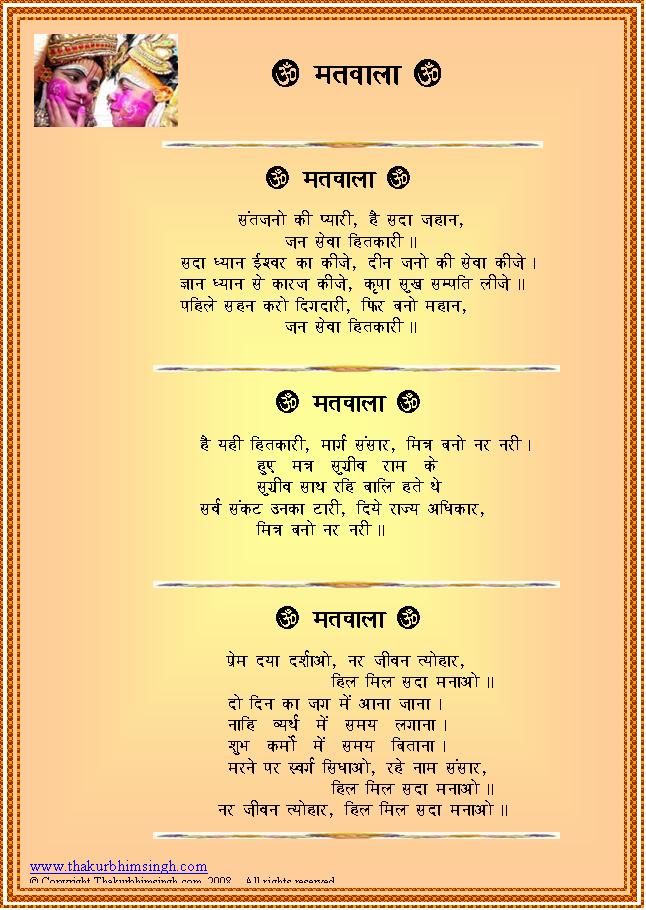 ॐ मतवाला ॐ
ॐ मतवाला ॐ
संतजनो की प्यारी, है सदा जहान,
जन सेवा हितकारी ॥
सदा ध्यान ईश्वर का कीजे, दीन जनो की सेवा कीजे ।
ज्ञान ध्यान से कारज कीजे, कृपा सुख सम्पति लीजे ॥
पहिले सहन करो दिगदारी, फिर बनो महान,
जन सेवा हितकारी ॥
ॐ मतवाला ॐ
है यही हितकारी, मार्ग संसार, मित्र बनो नर नरी ।
हुए मत्र सुग्रीव राम के
सुग्रीव साथ रहि बालि हते थे
सर्व संकट उनका टारी, दिये राज्य अधिकार,
मित्र बनो नर नरी ॥
ॐ मतवाला ॐ
प्रेम दया दर्शाओ, नर जीवन त्योहार,
हिल मिल सदा मनाओ ॥
दो दिन का जग में आना जाना ।
नाहि व्यर्थ में समय लगाना ।
शुभ कर्मो में समय बिताना ।
मरने पर स्वर्ग सिधाओ, रहे नाम संसार,
हिल मिल सदा मनाओ ॥
नर जीवन त्योहार, हिल मिल सदा मनाओ ॥
www.thakurbhimsingh.com
© Copyright Thakurbhimsingh.com 2008 All rights reserved